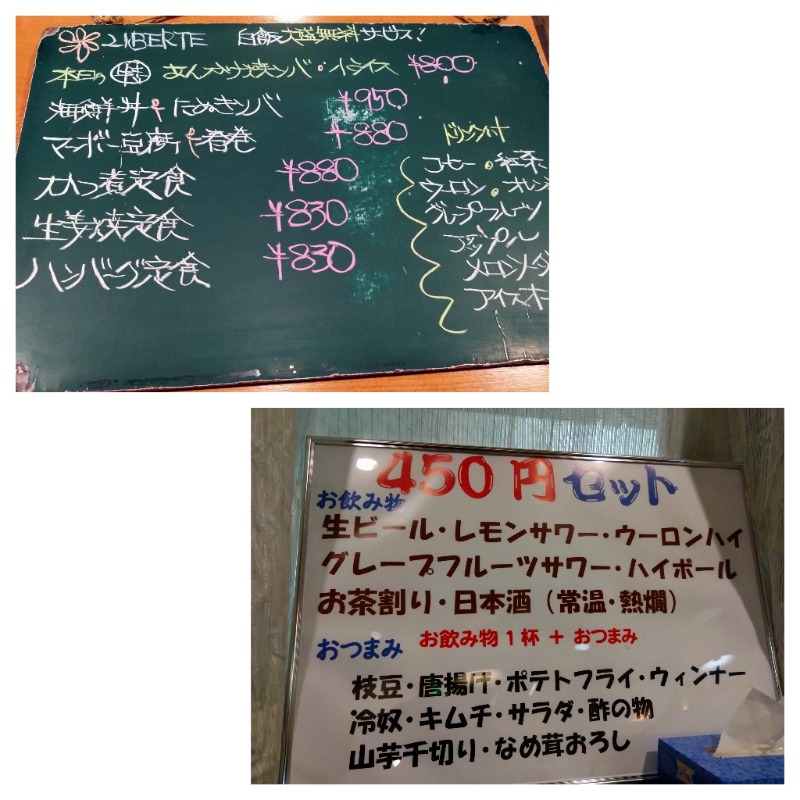 LIBERTE 白飯大盛無料サービス!
本日の特 あんかけ焼ソバ・小ライス ¥800
海鮮丼とたぬきソバ ¥950
マーボー豆腐と春巻 ¥880
かつ煮定食 ¥880
生姜焼定食 ¥830
ハンバーグ定食 ¥830
ドリンク付
コーヒー・紅茶
ウーロン・オレン
グレープフルーツ
アップル
メロンソーダ
アイスオー
450円セット
お飲み物
生ビール・レモンサワー・ウーロンハイ
グレープフルーツサワー・ハイボール
お茶割り・日本酒(常温・熱燗)
おつまみ お飲み物1杯 + おつまみ
枝豆・唐揚げ・ポテトフライ・ウィンナー
冷奴・キムチ・サラダ・酢の物
山芋千切り・なめ茸おろし